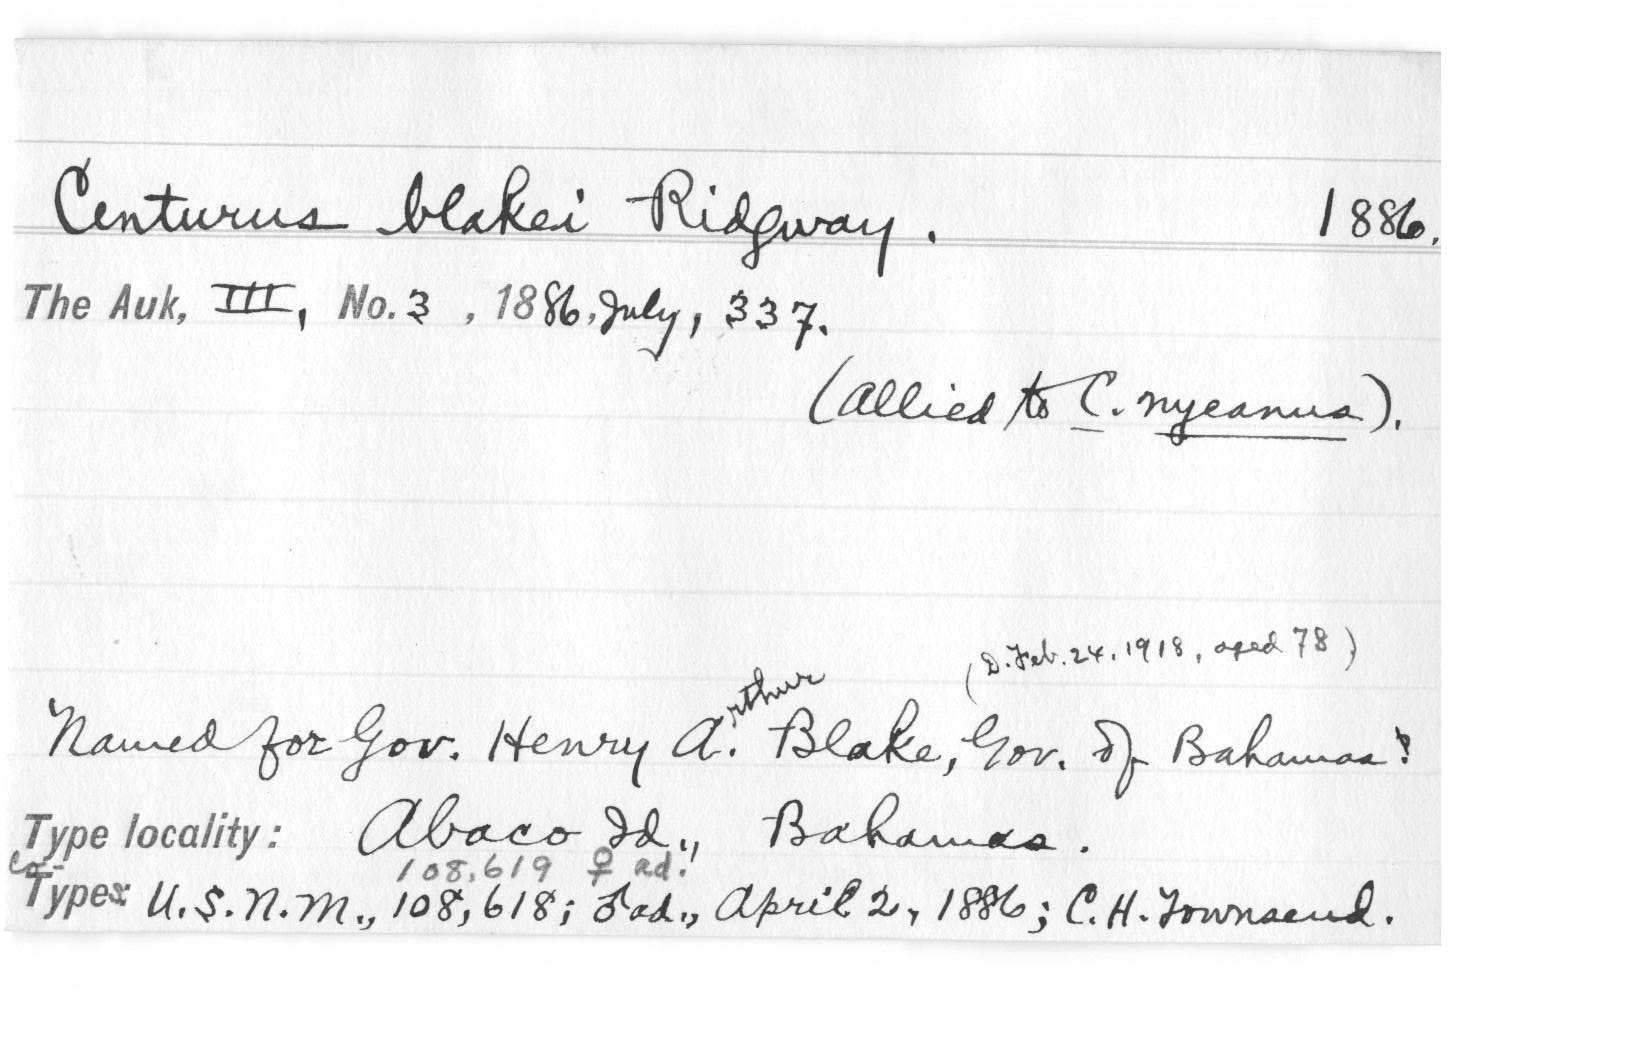 Centurus blakei Ridgway. 1886.
The Auk, III, No. 3, 1886, July, 337.
(allied to C. nyeanus).
(D. Feb. 24, 1918, aged 78)
rthur
Named for Gov. Henry A. Blake, Gov. of Bahamas!
Type locality: Abaco Id., Bahamas.
Co- 108,619 ♀ ad.!
Types: U.S.N.M., 108,618; ♂ ad., April 2, 1886; C.H. Townsend.